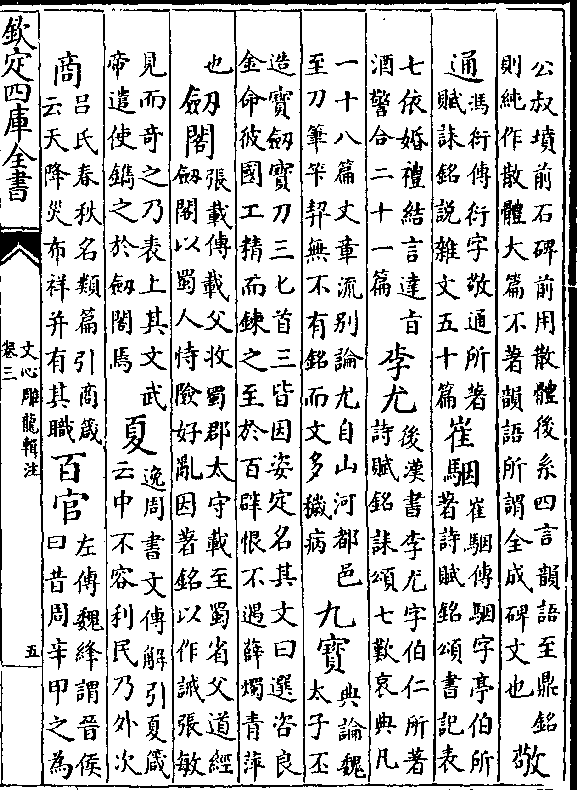 公叔墳前石碑前用散體後系四言韻語至鼎銘
則純作散體大篇不著韻語所謂全成碑文也
敬
通
馮衍傳衍字敬通所著
賦誄銘説雜文五十篇
崔駰
崔駰傳駰字亭伯所
著詩賦銘頌書記表
七依婚禮結言達㫖
酒警合二十一篇
李尤
後漢書李尤字伯仁所著
詩賦銘誄頌七歎哀典凡
一十八篇文章流别論尤自山河都邑
至刀筆竿契無不有銘而文多穢病
九寳
典論魏
太子丕
造寳劒寳刀三七首三皆因姿定名其文曰選咨良
金命彼國工精而鍊之至於百辟恨不遇薛燭青萍
也
劒閣
張載傳載父收蜀郡太守載至蜀省父道經
劒閣以蜀人恃險好亂因著銘以作誡張敏
見而奇之乃表上其文武
帝遣使鐫之於劒閣焉
夏
逸周書文傳解引夏箴
云中不容利民乃外次
商
吕氏春秋名類篇引商箴
云天降災布祥并有其職
百官
左傳魏絳謂晉侯
曰昔周辛甲之為
欽定四庫全書
文心雕龍輯注
卷三
五